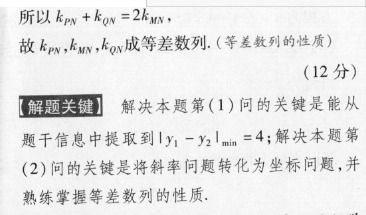 所以 k_{PN} + k_{QN} = 2k_{MN},
故 k_{PN},k_{MN},k_{QN}成等差数列.(等差数列的性质)
(12 分)
【解题关键】 解决本题第(1)问的关键是能从
题干信息中提取到|y₁ - y₂|_{min} = 4;解决本题第
(2)问的关键是将斜率问题转化为坐标问题,并
熟练掌握等差数列的性质.